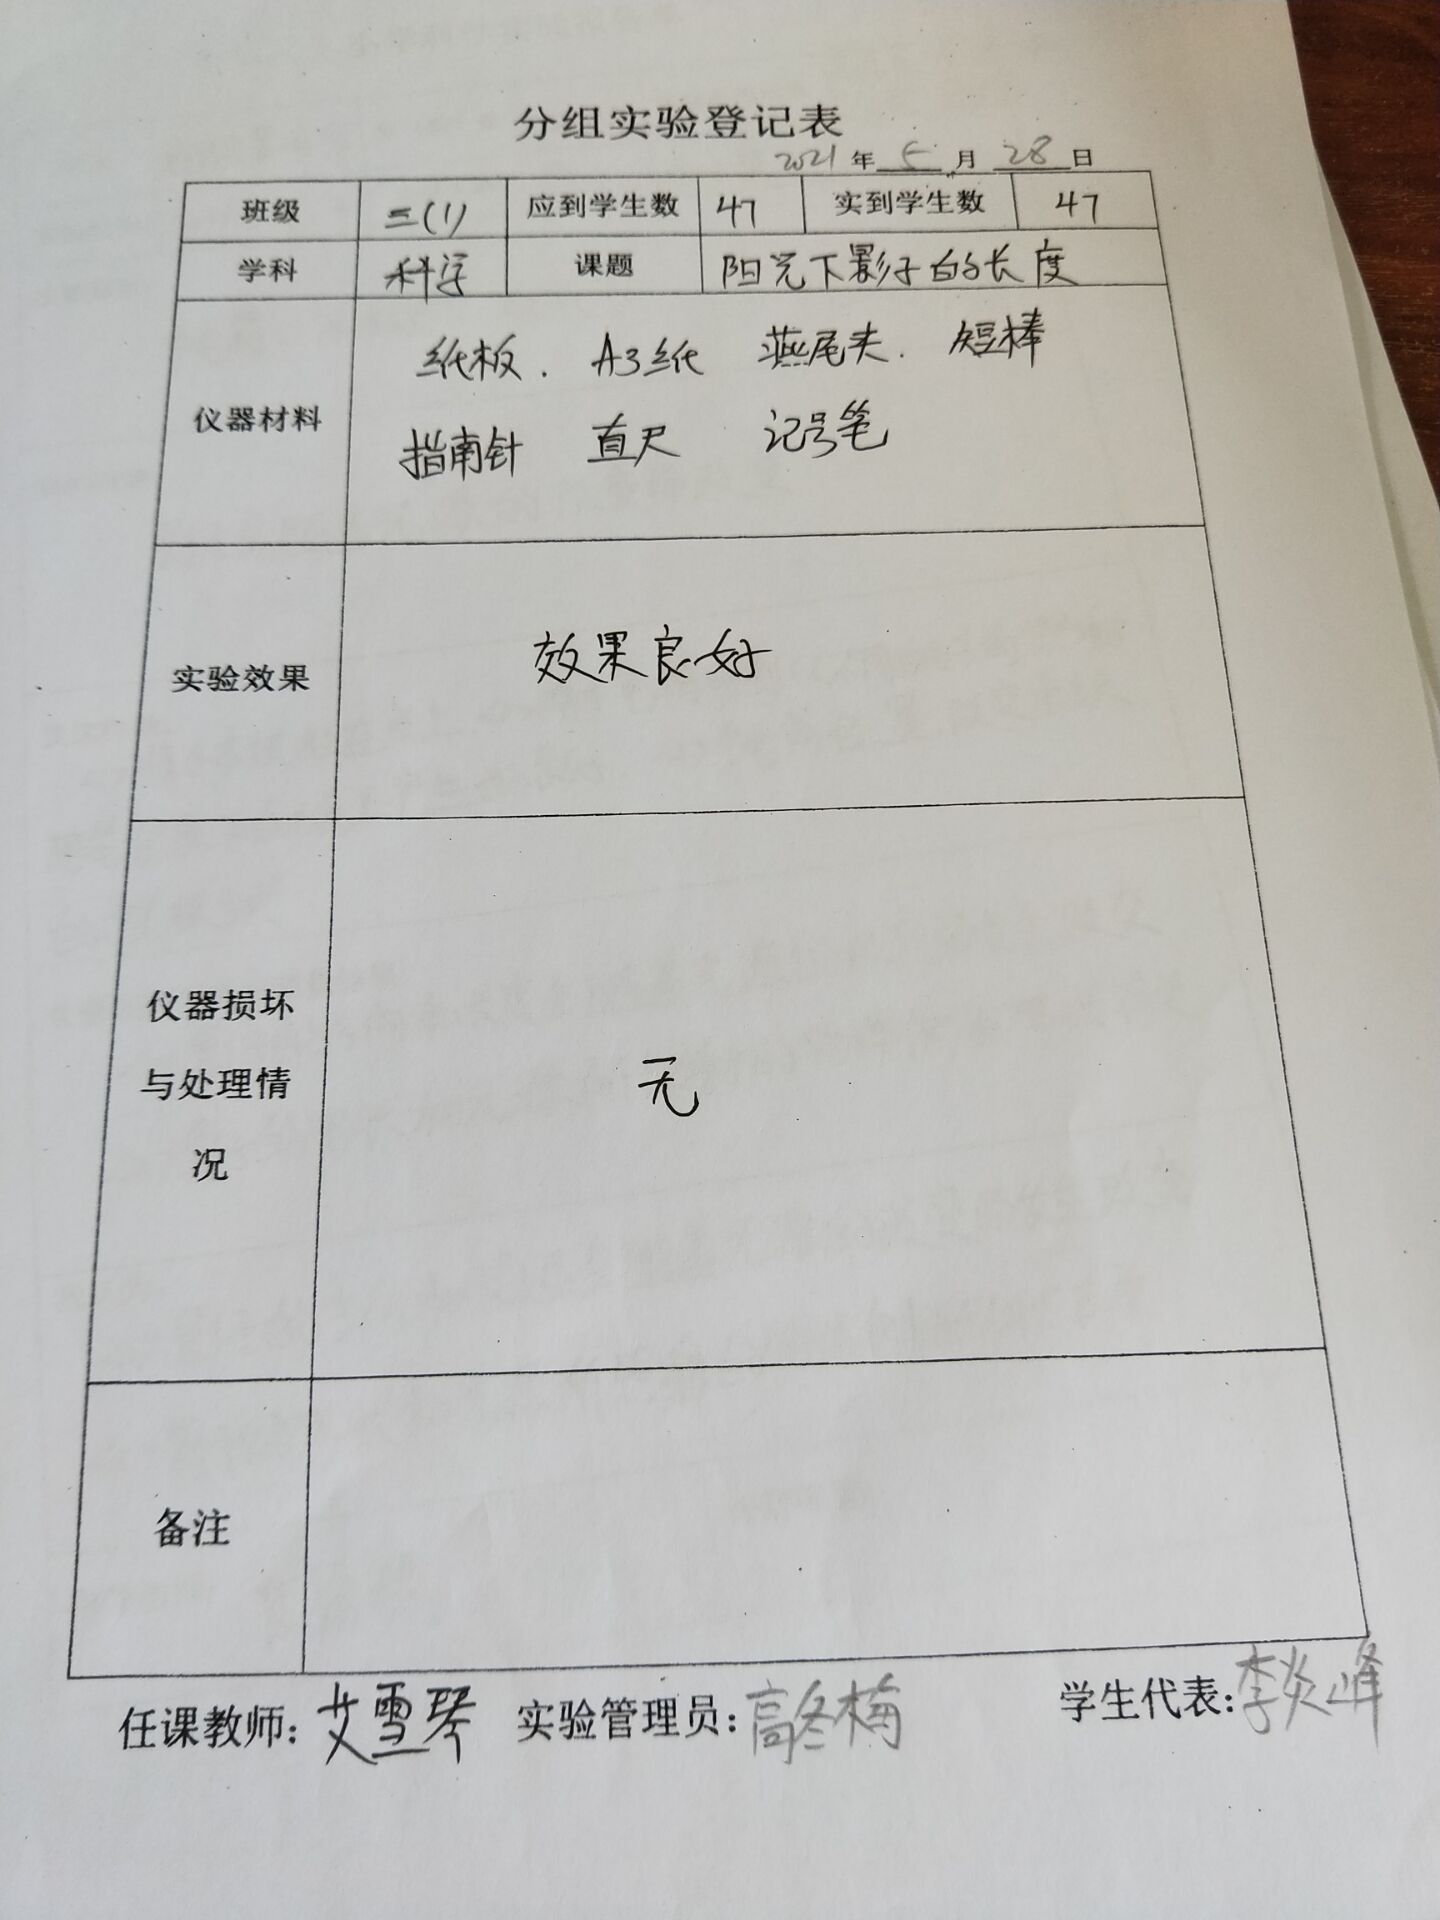 分组实验登记表
2021年 5 月 28 日
班级 三(1) 应到学生数 47 实到学生数 47
学科 科学 课题 阳光下影子的长度
仪器材料 纸板. A3纸 燕尾夹. 短棒
指南针 直尺 记号笔
实验效果 效果良好
仪器损坏
与处理情
况
无
备注
任课教师: 艾雪琴 实验管理员: 高冬梅 学生代表: 李炎峰